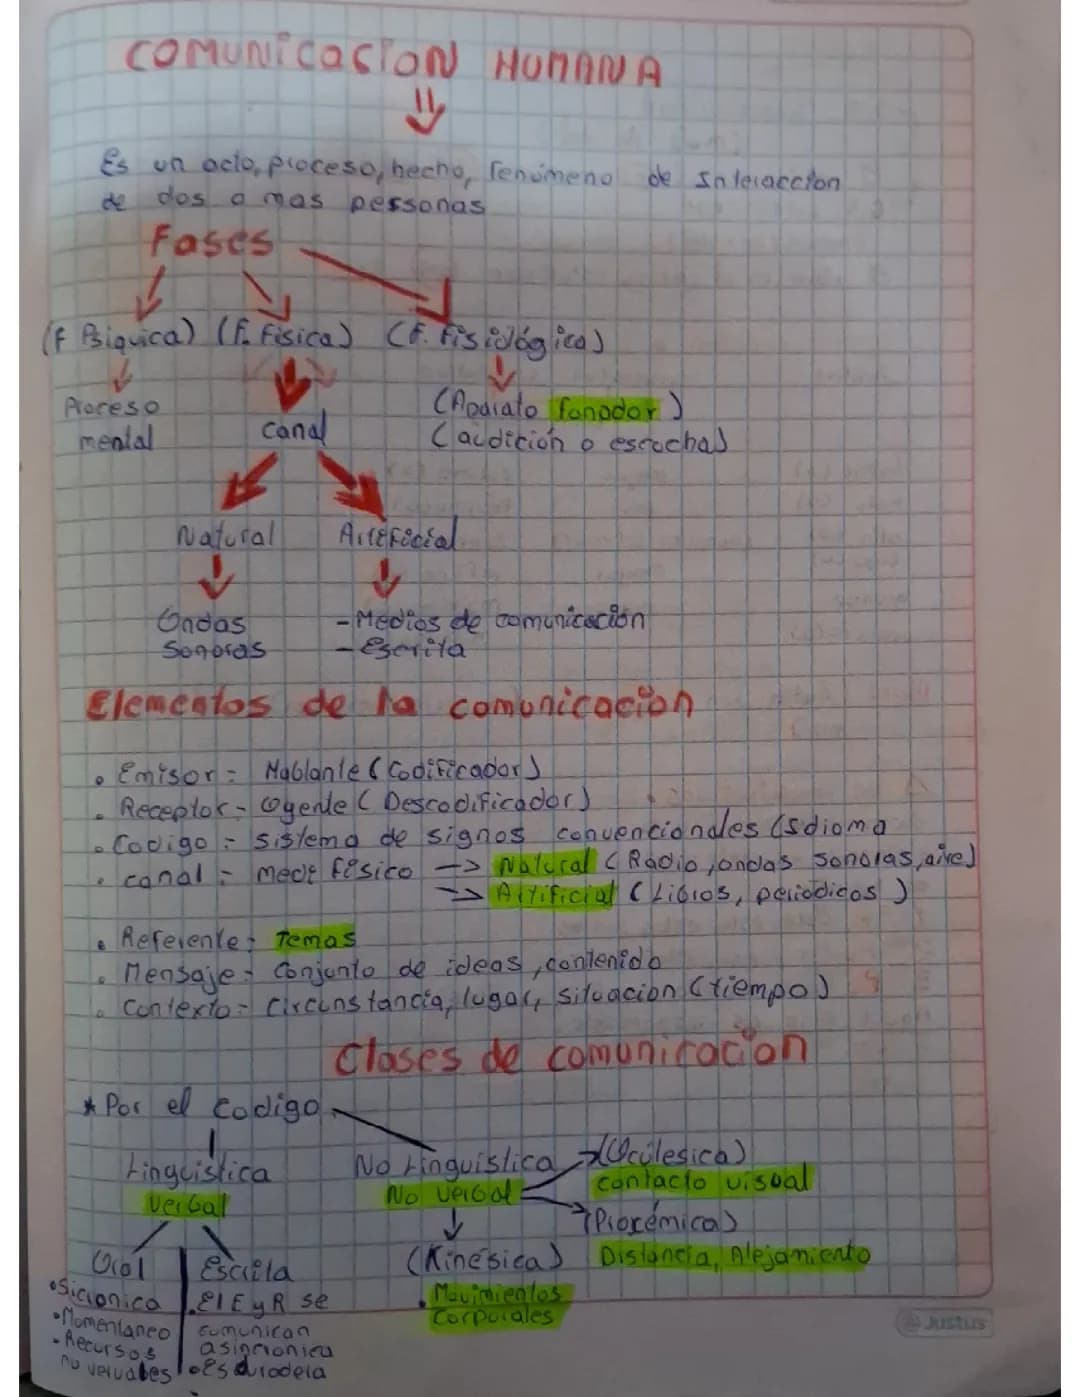 COMUNICACION HUMANA
Es un acto, proceso, hecho, fenómeno de Interaccion
de dos o mas personas
Fases
(F Psiquica) (F. Fisica) (F. Fisiológica)
Proceso
mental
canal
(Aparato fonador)
(audición o escucha)
Natural Artificial
Ondas
Sonoras
- Medios de comunicación
- Escrita
Elementos de la comunicación
• Emisor = Hablante (Codificador)
• Receptor - Oyente (Descodificador)
• Codigo = sistema de signos convencionales (Idioma
• canal = medi físico → Natural (Radio, ondas sonoras, aire)
→ Artificial (Libros, periodicos)
• Referente = Temas
• Mensaje = Conjunto de ideas, contenido
• Contexto = Circunstancia, lugar, situacion (tiempo)
Clases de comunicacion
* Por el codigo
Linguistica
Verbal
No Linguistica
No verbal
(Oculesica)
contacto visual
(Proxémica)
Distancia, Alejamiento
(Kinésica)
• Movimientos
Corporales
Oral
• Sicronica
• Momentaneo
- Recursos
no veruables
Escrita
• El E y R se
comunican
asincronica
• es duradera
Justus